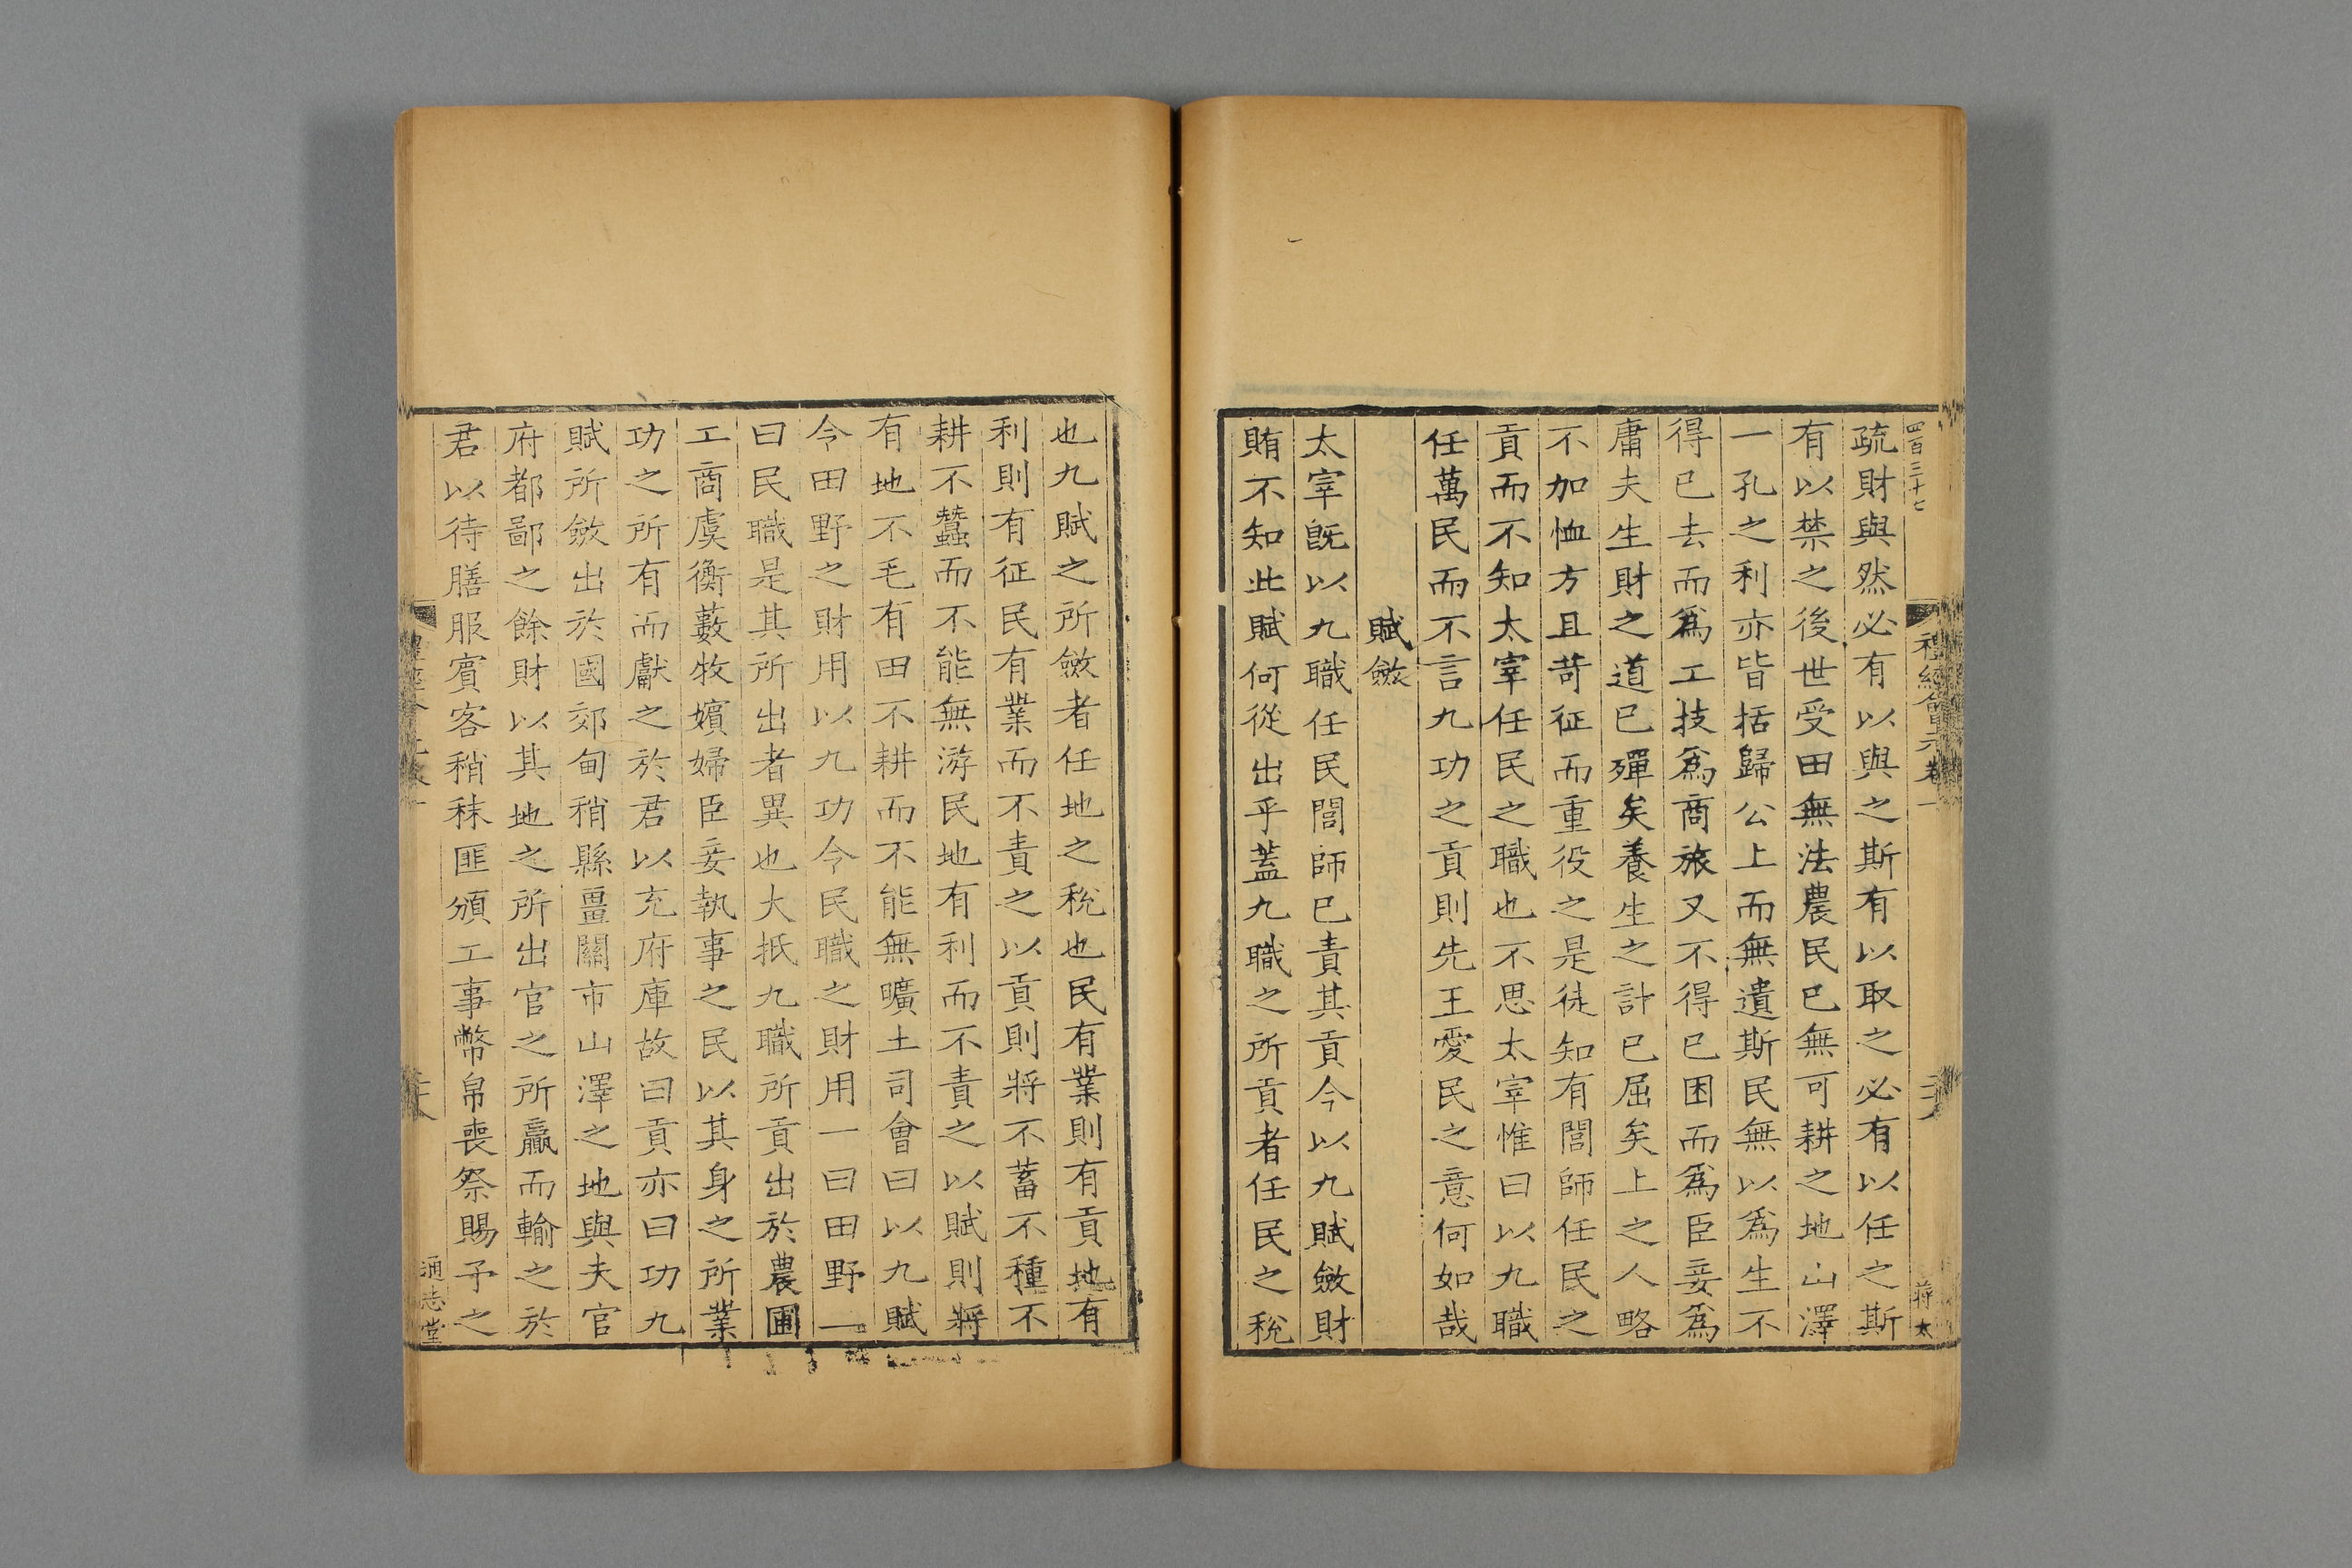 四百三十七
禮經會元卷一
蔣太
疏財與然必有以與之斯有以取之必有以任之斯
有以禁之後世受田無法農民已無可耕之地山澤
一孔之利亦皆括歸公上而無遺斯民無以爲生不
得已去而爲工技爲商旅又不得已困而爲臣妾爲
庸夫生財之道已殫矣養生之計已屈矣上之人略
不加恤方且苛征而重役之是徒知有閭師任民之
貢而不知太宰任民之職也不思太宰惟曰以九職
任萬民而不言九功之貢則先王愛民之意何如哉
賦斂
太宰旣以九職任民閭師已責其貢今以九賦斂財
賄不知此賦何從出乎蓋九職之所貢者任民之稅
也九賦之所斂者任地之稅也民有業則有貢地有
利則有征民有業而不責之以貢則將不蓄不種不
耕不蠶而不能無游民地有利而不責之以賦則將
有地不毛有田不耕而不能無曠土司會曰以九賦
令田野之財用以九功令民職之財用一曰田野一
曰民職是其所出者異也大抵九職所貢出於農圃
工商虞衡藪牧嬪婦臣妾執事之民以其身之所業
功之所有而獻之於君以充府庫故曰貢亦曰功九
賦所斂出於國郊甸稍縣畺關市山澤之地與夫官
府都鄙之餘財以其地之所出官之所贏而輸之於
君以待膳服賓客稍秣匪頒工事幣帛喪祭賜予之
通志堂